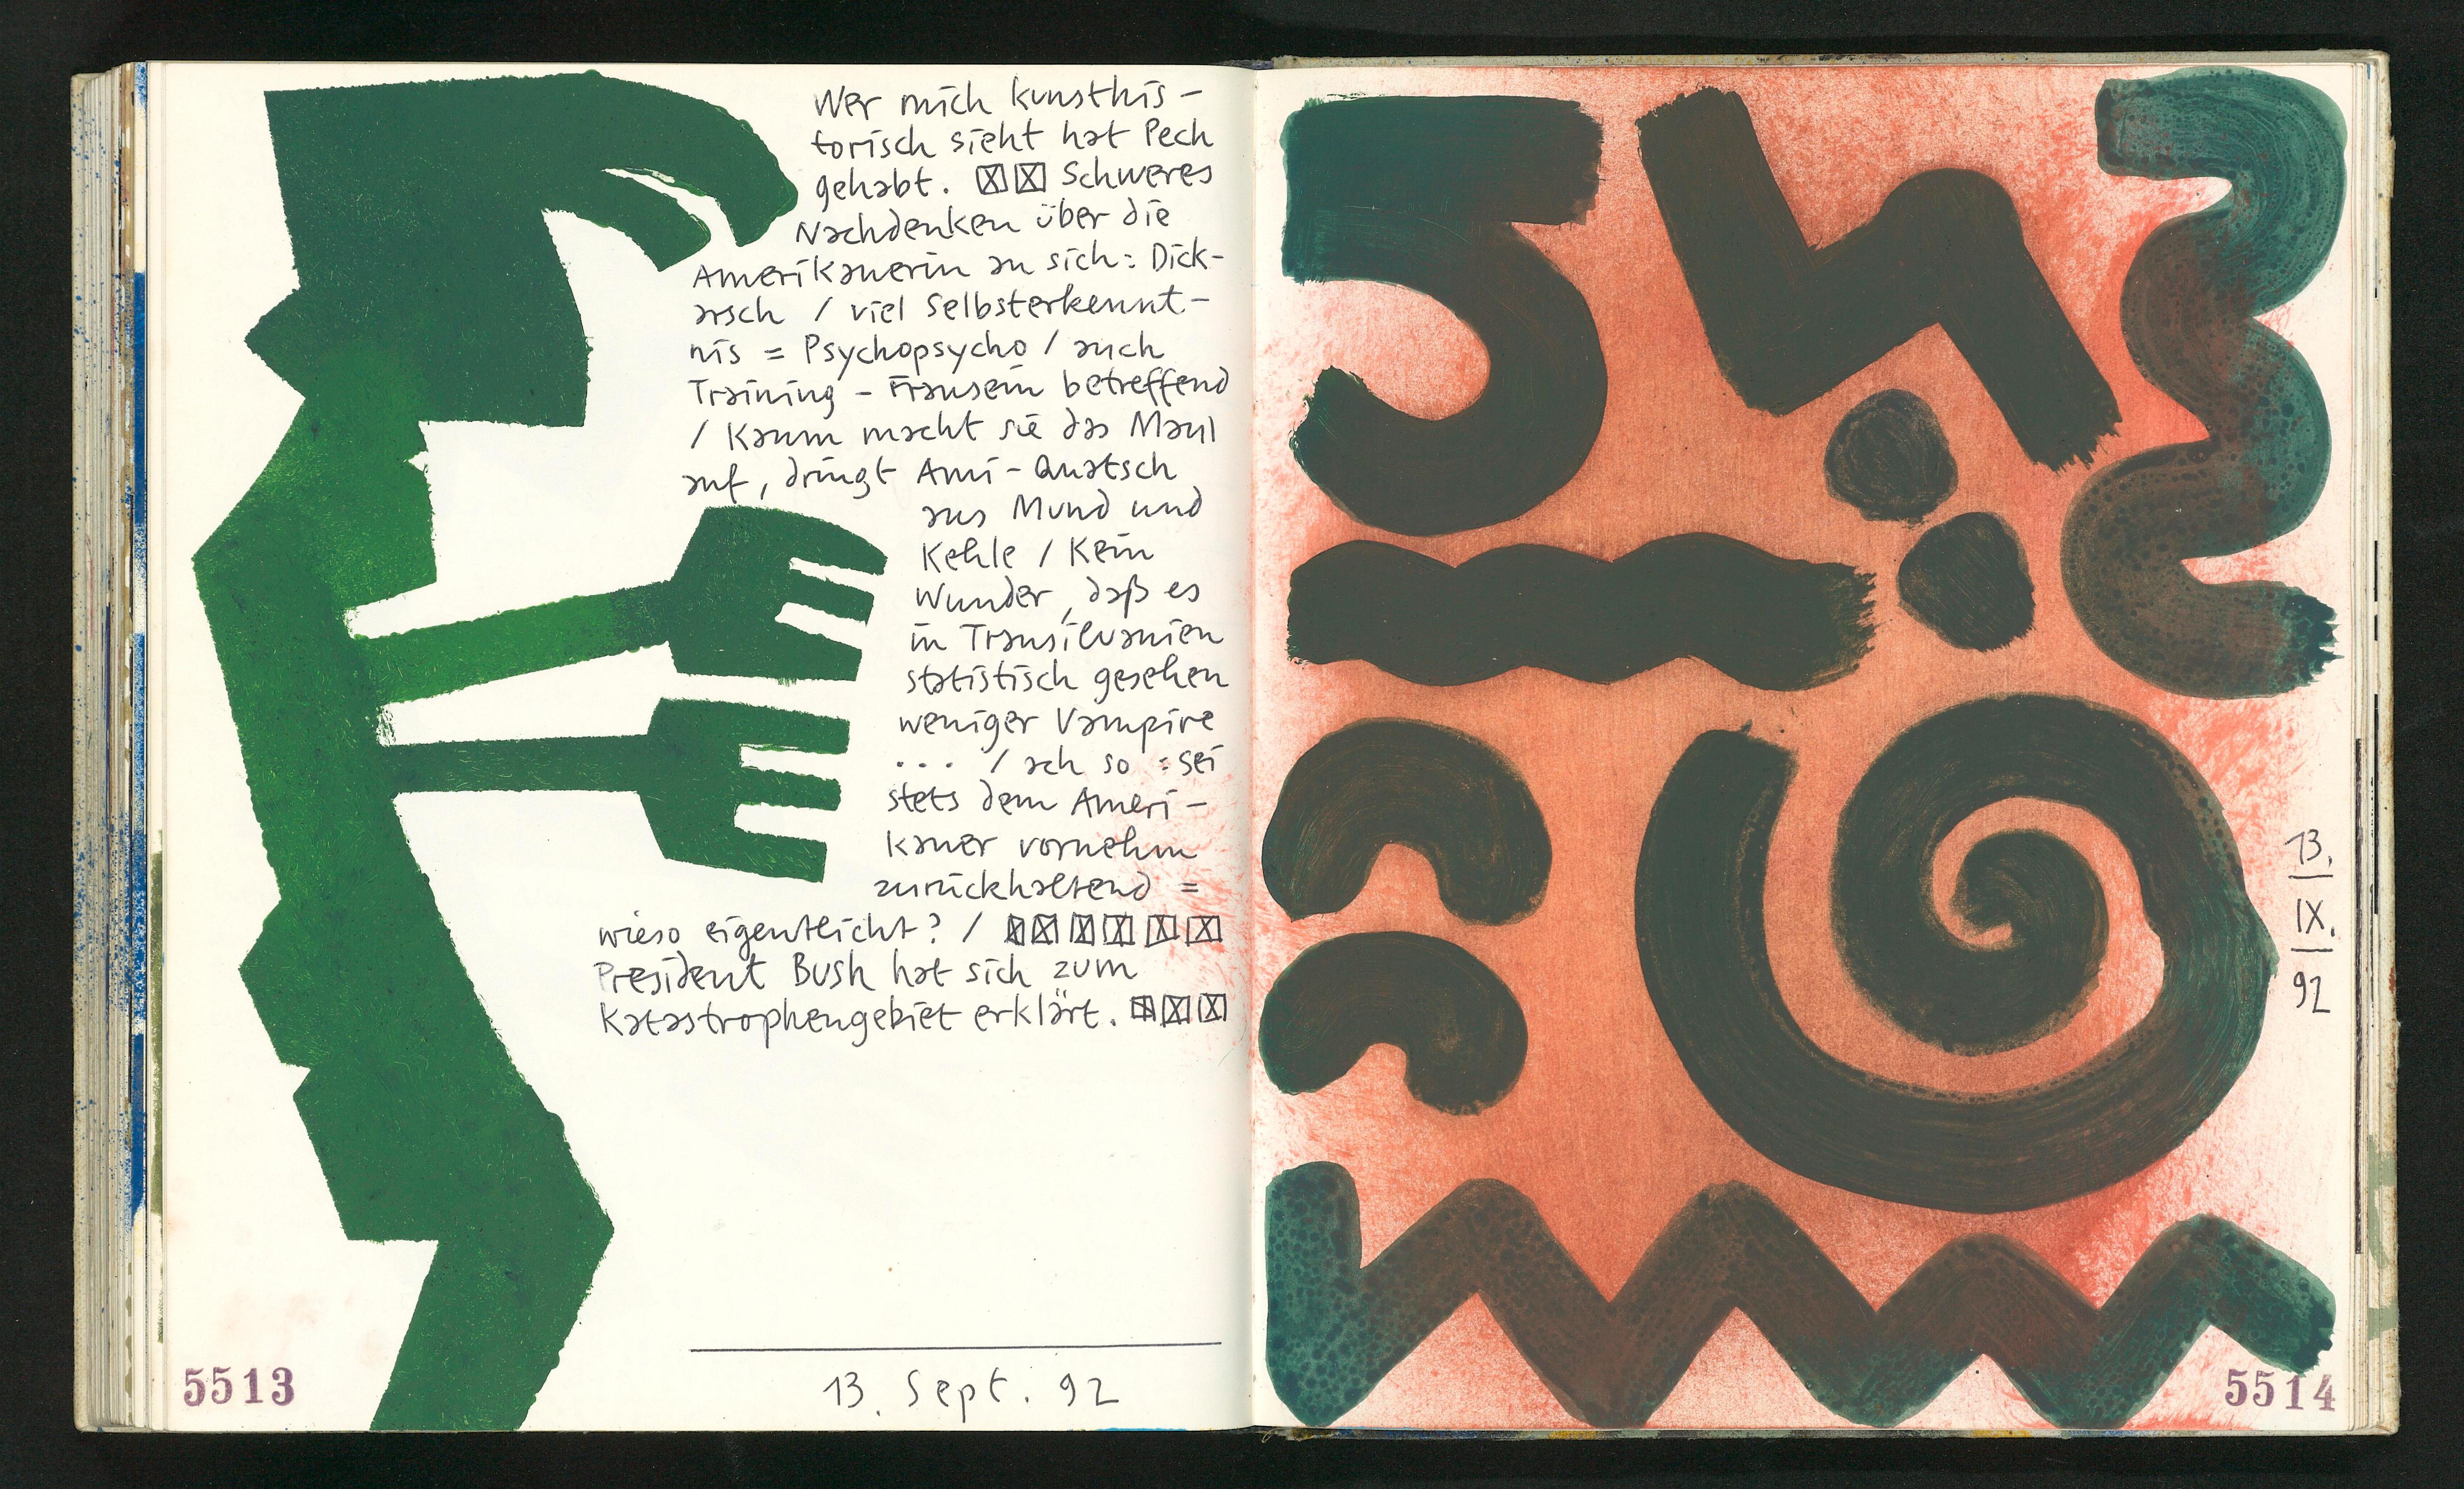 Wer mich kunsthis-
torisch sieht hat Pech
gehabt. ☒☒ Schweres
Nachdenken über die
Amerikanerin an sich: Dick-
arsch / viel Selbsterkennt-
nis = Psychopsycho / auch
Training - Frausein betreffend
/ Kaum macht sie das Maul
auf, dringt Ami-Quatsch
aus Mund und
Kehle / Kein
Wunder, daß es
in Transilvanien
statistisch gesehen
weniger Vampire
... / ach so : sei
stets dem Ameri-
kaner vornehm
zurückhaltend =
wieso eigentlicht? / ☒☒☒☒☒☒
President Bush hat sich zum
Katastrophengebiet erklärt. ☒☒☒
13. Sept. 92
5513
13.
IX.
92
5514